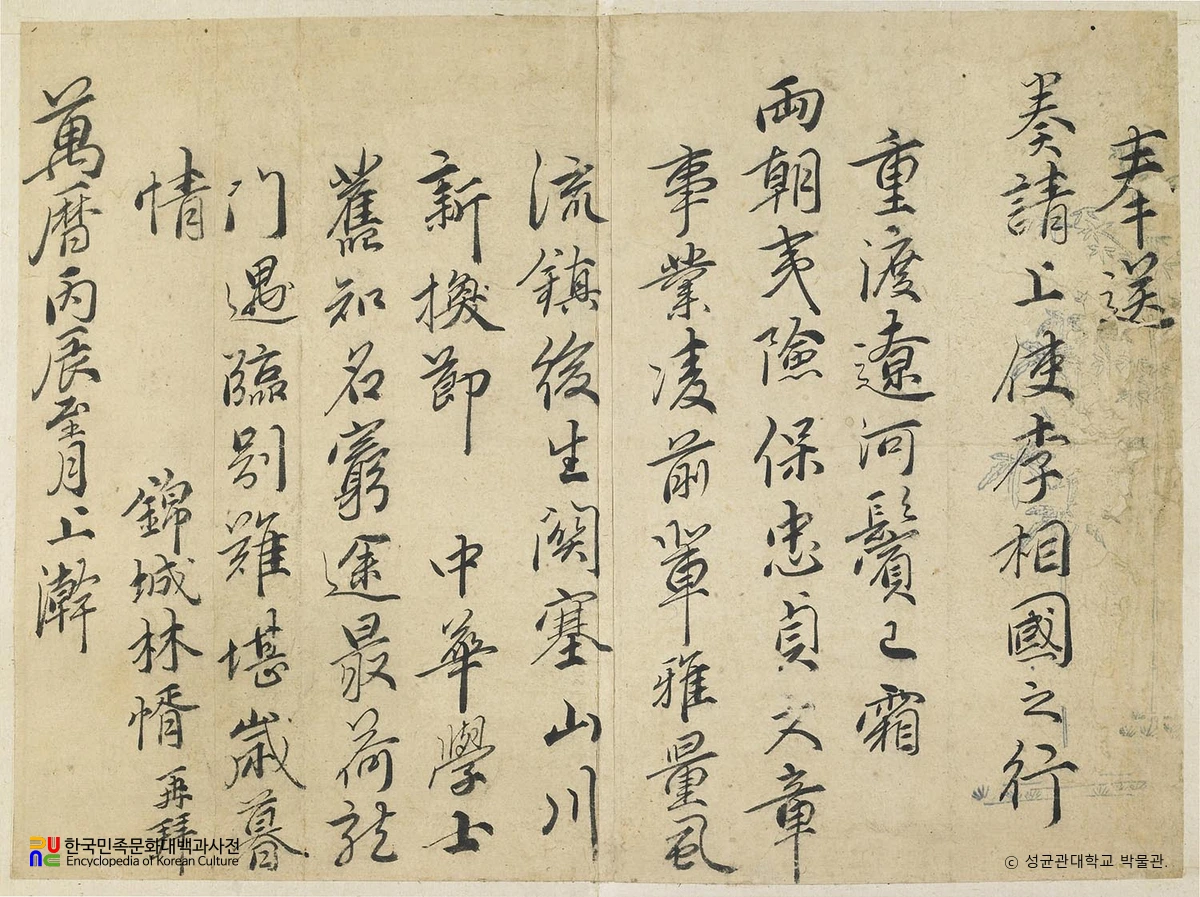 奉送
奏請上使李相國之行
重渡遼河鬢已霜
兩朝夷險保忠貞文章
事業凌前輩雅量風
流鎮後生關塞山川
新換節 中華學士
舊知名窮途最荷龍
門遇臨別難堪歲暮
情
錦城林㥠 再拜
萬曆丙辰至月上澣
한국민족문화대백과사전
Encyclopedia of Korean Culture
ⓒ 성균관대학교 박물관.